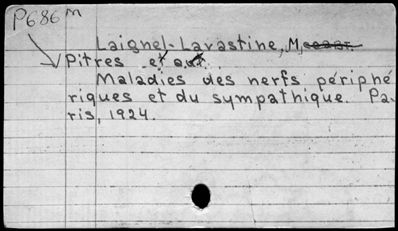 P686 M
Laignel-Lavastine, M,
Pitres et aut
Maladies des nerfs périphé
riques et du sympathique. Pa-
ris, 1924.